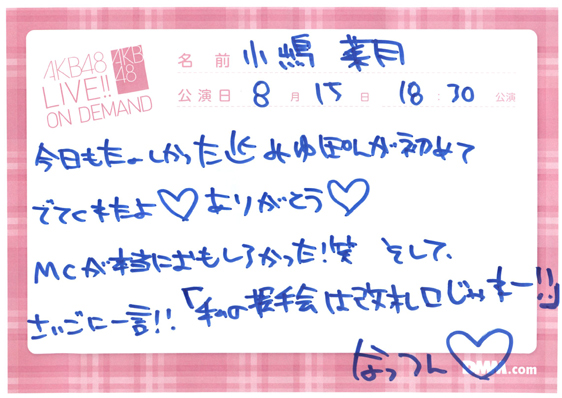 AKB48
LIVE!!
ON DEMAND
AKB
48
名前 小嶋 菜月
公演日 8月15日 18:30 公演
今日もたのしかった
みゆぽんが初めて
でてくれたよ♡ありがとう♡
MCが本当におもしろかった!笑 そして、
さいごに一言!!「私の握手会は改札口じゃねー!!」
なっつん♡
.com